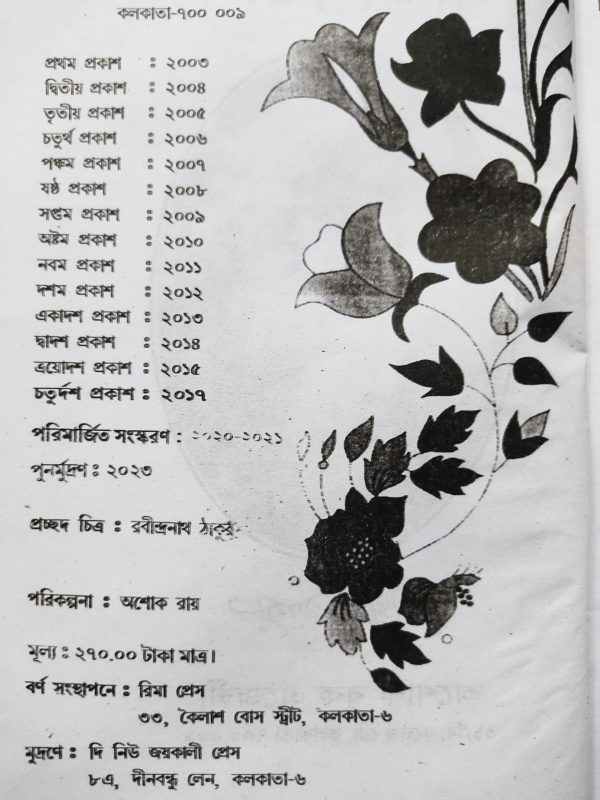 কলকাতা-৭০০ ০০৯
প্রথম প্রকাশ : ২০০৩
দ্বিতীয় প্রকাশ : ২০০৪
তৃতীয় প্রকাশ : ২০০৫
চতুর্থ প্রকাশ : ২০০৬
পঞ্চম প্রকাশ : ২০০৭
ষষ্ঠ প্রকাশ : ২০০৮
সপ্তম প্রকাশ : ২০০৯
অষ্টম প্রকাশ : ২০১০
নবম প্রকাশ : ২০১১
দশম প্রকাশ : ২০১২
একাদশ প্রকাশ : ২০১৩
দ্বাদশ প্রকাশ : ২০১৪
ত্রয়োদশ প্রকাশ : ২০১৫
চতুর্দশ প্রকাশ : ২০১৭
পরিমার্জিত সংস্করণ : ২০২০-২০২১
পুনর্মুদ্রণ : ২০২৩
প্রচ্ছদ চিত্র : রবীন্দ্রনাথ ঠাকুর
পরিকল্পনা : অশোক রায়
মূল্য : ২৭০.০০ টাকা মাত্র।
বর্ণ সংস্থাপনে : রিমা প্রেস
৩৩, কৈলাশ বোস স্ট্রীট, কলকাতা-৬
মুদ্রণে : দি নিউ জয়কালী প্রেস
৮এ, দীনবন্ধু লেন, কলকাতা-৬